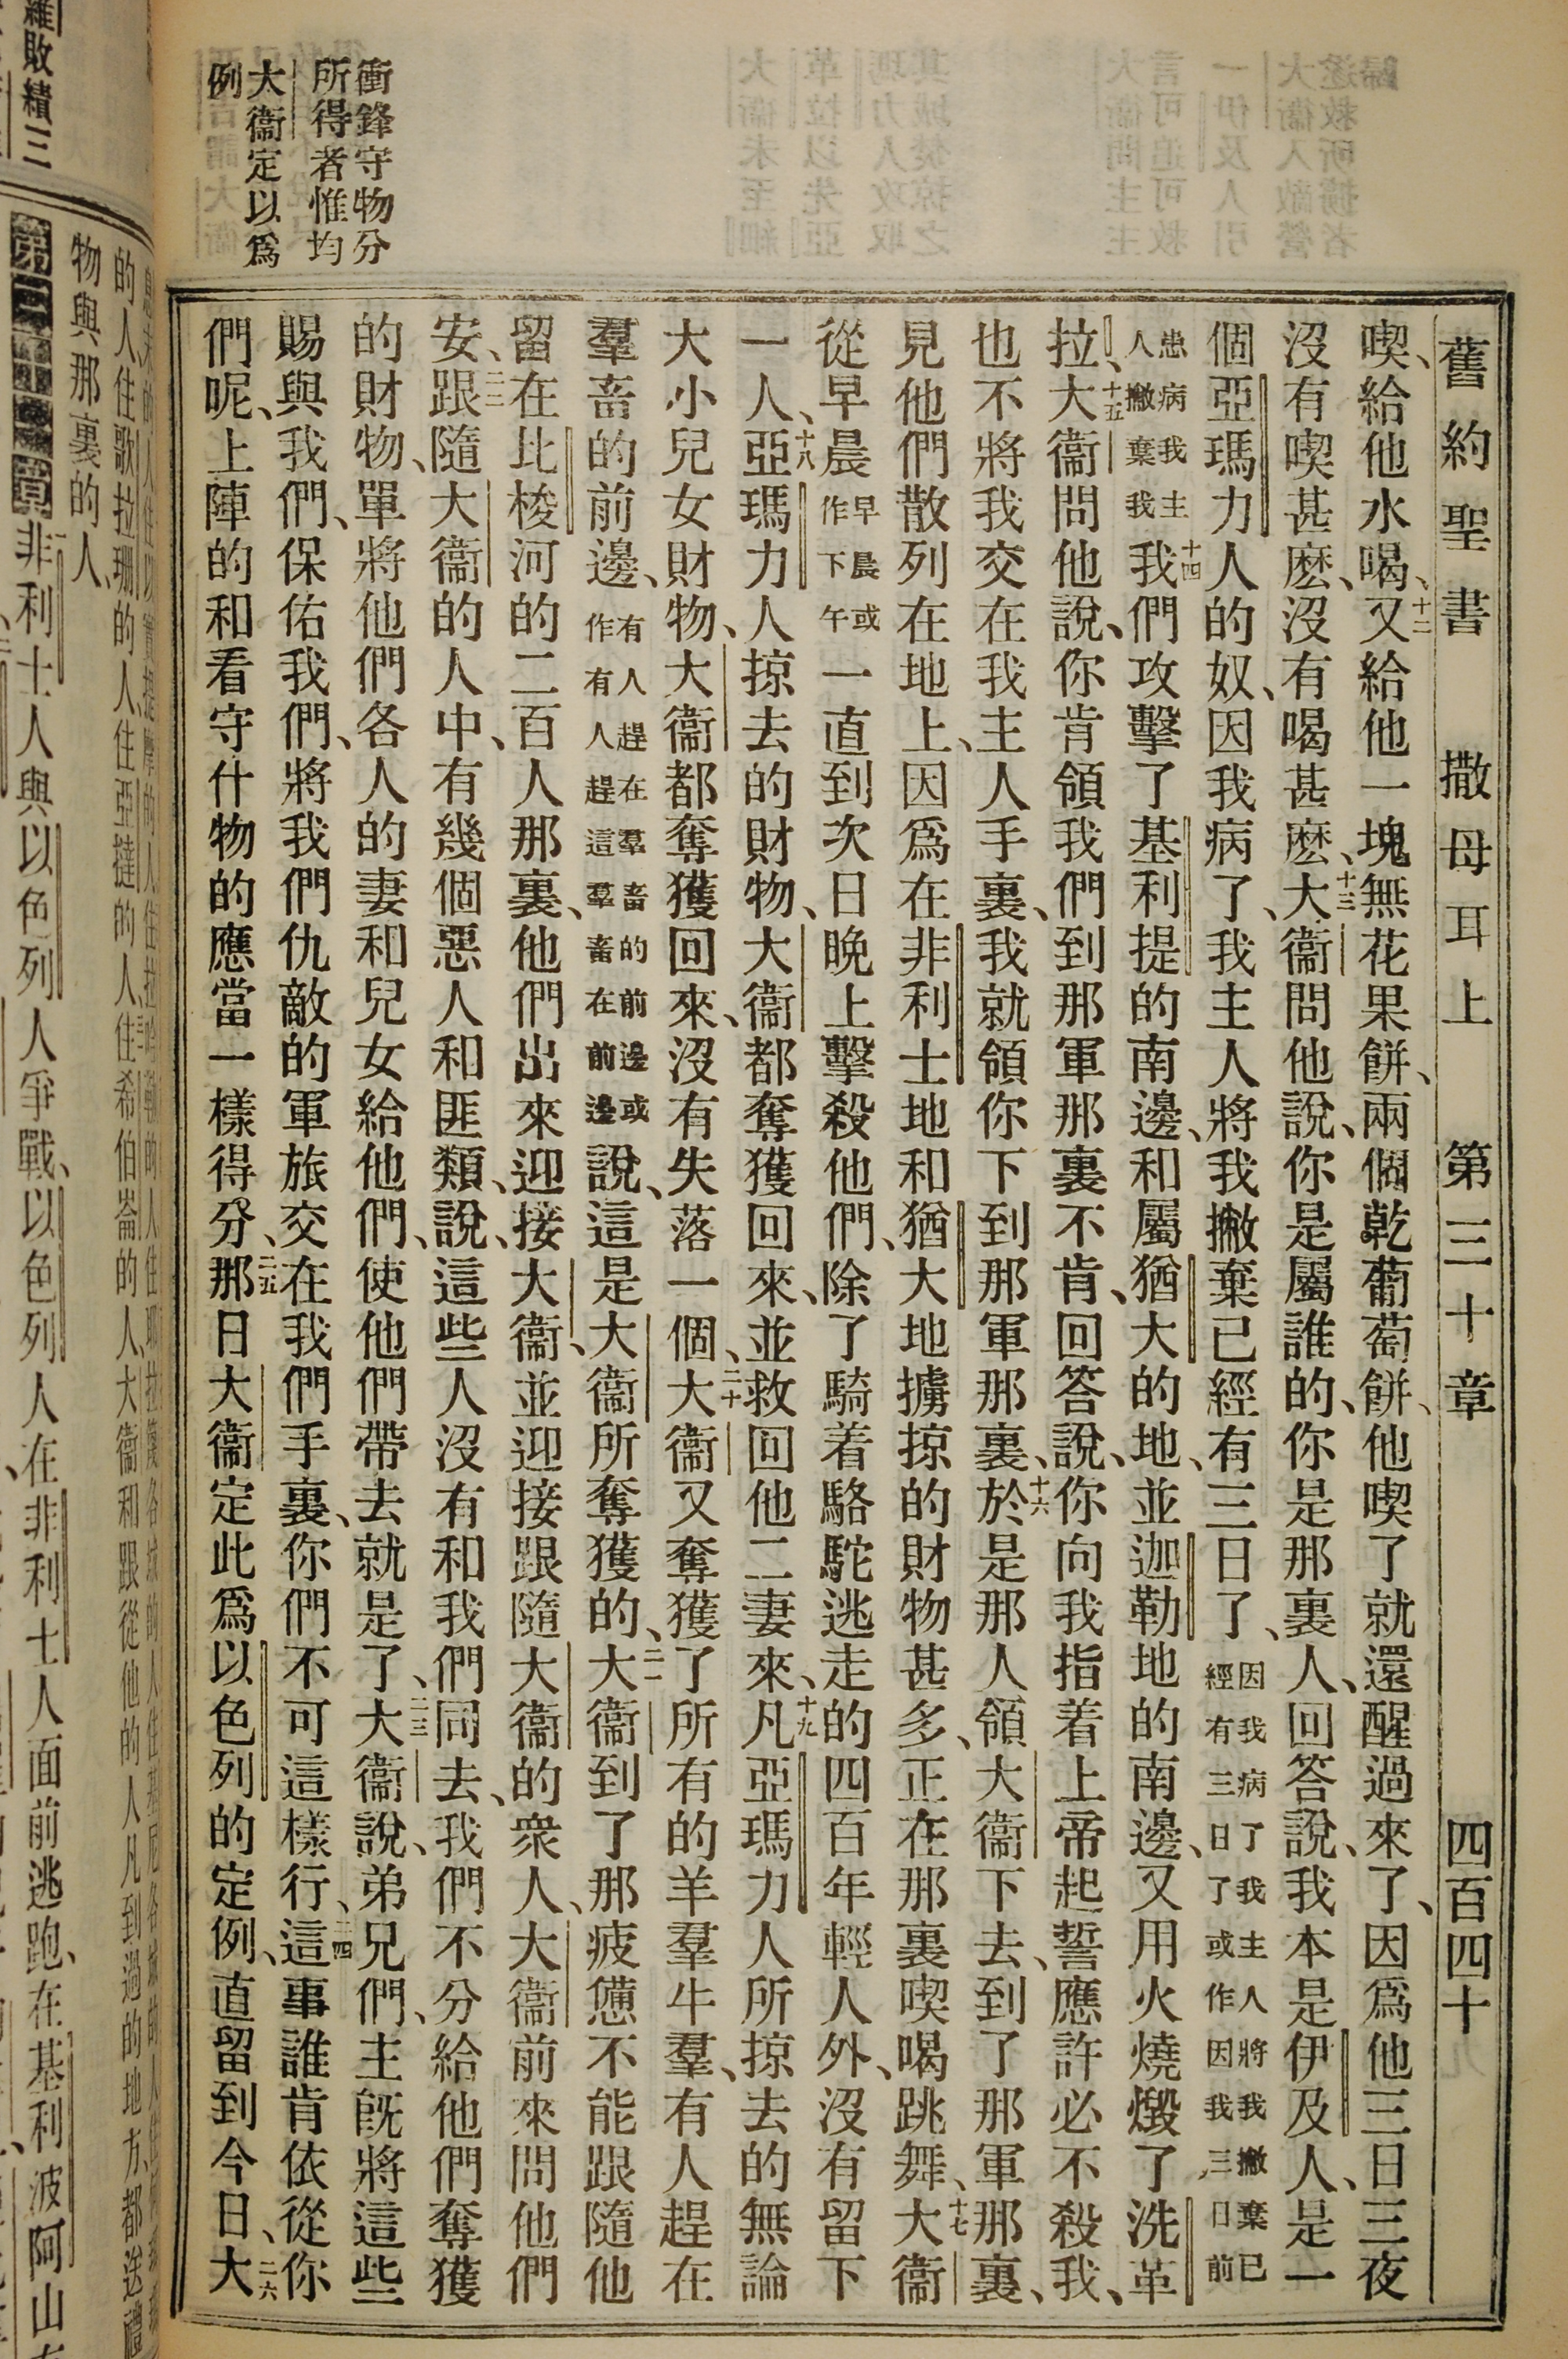 舊約聖書 撒母耳上 第三十章 四百四十
喫、給他水喝、十二又給他一塊無花果餅、兩個乾葡萄餅、他喫了就還醒過來了、因爲他三日三夜
沒有喫甚麽、沒有喝甚麽、十三大衞問他說、你是屬誰的、你是那裏人、回答說、我本是伊及人、是一
個亞瑪力人的奴、因我病了、我主人將我撇棄已經有三日了、因我病了我主人將我撇棄已經有三日了或作因我三日前
患病我主人撇棄我十四我們攻擊了基利提的南邊、和屬猶大的地、並迦勒地的南邊、又用火燒燬了洗革
拉、十五大衞問他說、你肯領我們到那軍那裏不肯、回答說、你向我指着上帝起誓應許必不殺我、
也不將我交在我主人手裏、我就領你下到那軍那裏、十六於是那人領大衞下去、到了那軍那裏、
見他們散列在地上、因爲在非利士地和猶大地擄掠的財物甚多、正在那裏喫喝跳舞、十七大衞
從早晨早晨或作下午一直到次日晚上擊殺他們、除了騎着駱駝逃走的四百年輕人外、沒有留下
一人、十八亞瑪力人掠去的財物、大衞都奪獲回來、並救回他二妻來、十九凡亞瑪力人所掠去的無論
大小兒女財物、大衞都奪獲回來、沒有失落一個、二十大衞又奪獲了所有的羊羣牛羣、有人趕在
羣畜的前邊、有人趕在羣畜的前邊或作有人趕這羣畜在前邊說、這是大衞所奪獲的、二一大衞到了那疲憊不能跟隨他
留在比梭河的二百人那裏、他們出來迎接大衞、並迎接跟隨大衞的衆人、大衞前來問他們
安、二二跟隨大衞的人中、有幾個惡人和匪類、說、這些人沒有和我們同去、我們不分給他們奪獲
的財物、單將他們各人的妻和兒女給他們、使他們帶去就是了、二三大衞說、弟兄們、主旣將這些
賜與我們、保佑我們、將我們仇敵的軍旅交在我們手裏、你們不可這樣行、二四這事誰肯依從你
們呢、上陣的和看守什物的應當一樣得分、二五那日大衞定此爲以色列的定例、直留到今日、二六大
衝鋒守物分
所得者惟均
大衞定以爲
例
物與那裏的人、
非利士人與以色列人爭戰、以色列人在非利士人面前逃跑、在基利波阿山